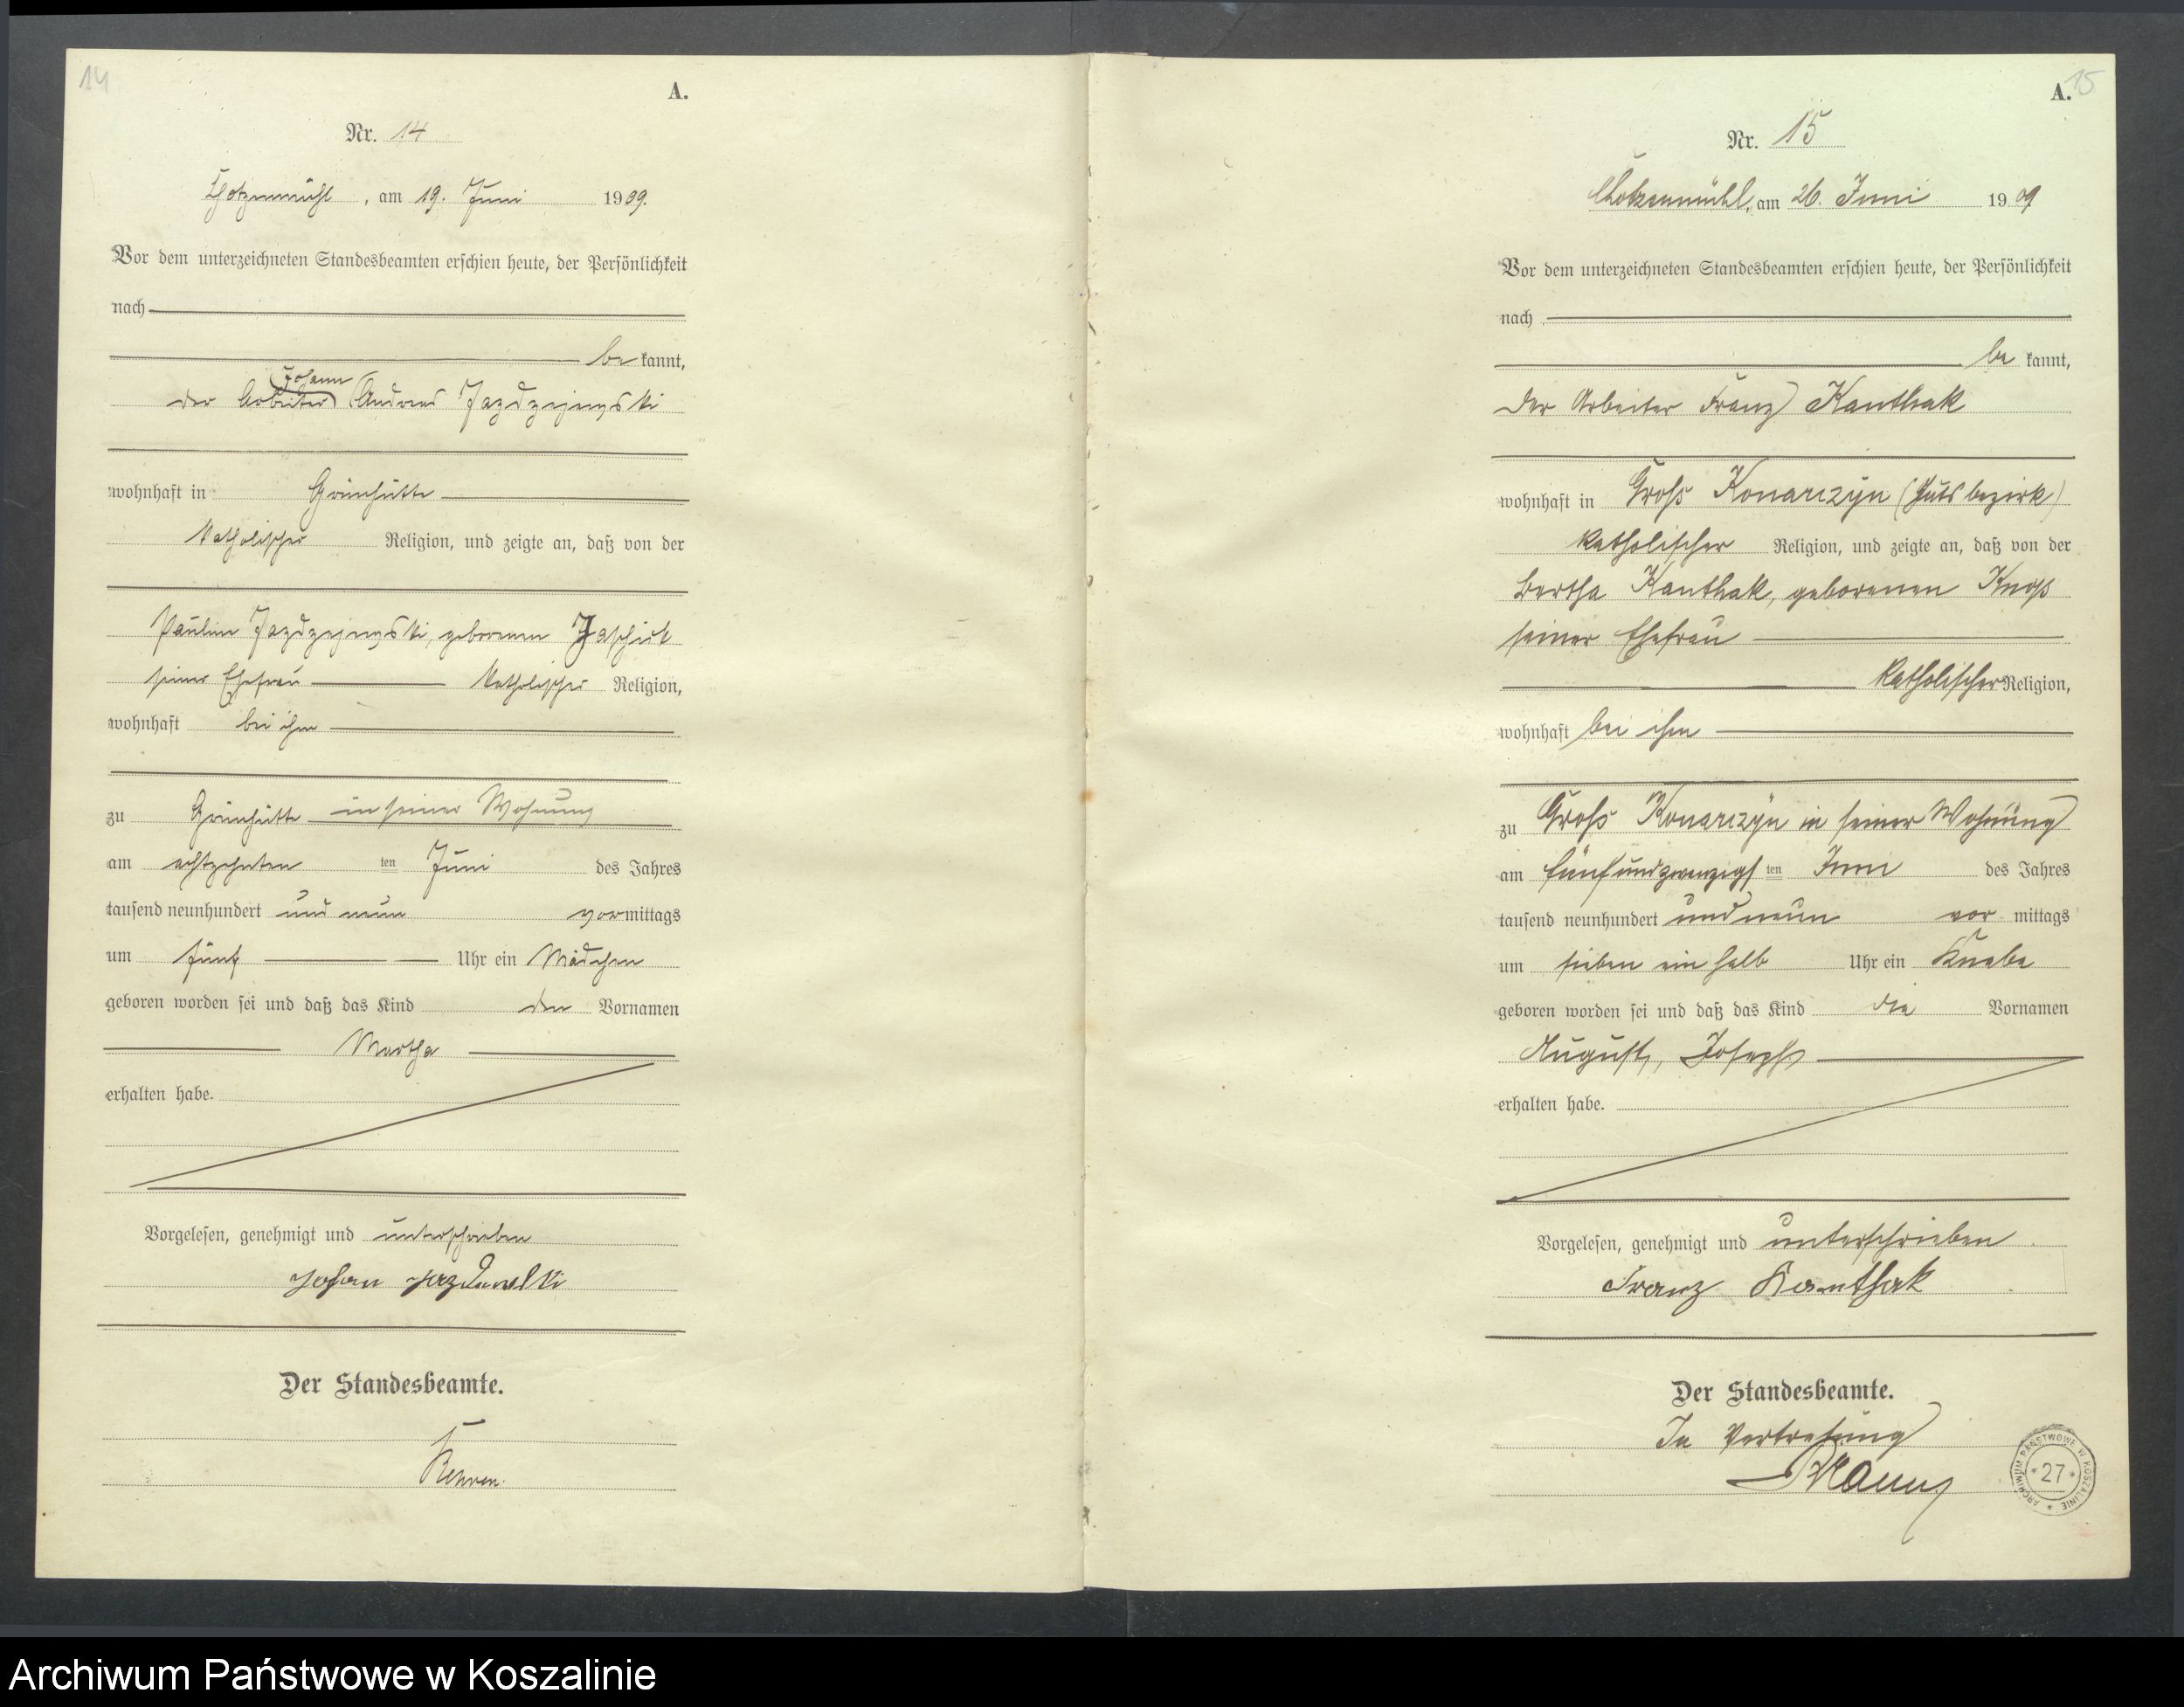 14
A.
Nr. 14
Chotzenmühl, am 19. Juni 1909.
Vor dem unterzeichneten Standesbeamten erschien heute, der Persönlichkeit
nach
be kannt,
Johann
der Arbeiter Andreas
wohnhaft in Grünhütte
katholischer Religion, und zeigte an, daß von der
Pauline geborenen
seiner Ehefrau katholischer Religion,
wohnhaft bei ihm
zu Grünhütte in seiner Wohnung
am achtzehnten ten Juni des Jahres
tausend neunhundert und neun vormittags
um fünf Uhr ein Mädchen
geboren worden sei und daß das Kind den Vornamen
Martha
erhalten habe.
Vorgelesen, genehmigt und unterschrieben
Johan
Der Standesbeamte.
15
A.
Nr. 15
Chotzenmühl, am 26. Juni 1909
Vor dem unterzeichneten Standesbeamten erschien heute, der Persönlichkeit
nach
be kannt,
der Arbeiter Franz Kanthak
wohnhaft in Groß Konarczyn (Gutsbezirk)
katholischer Religion, und zeigte an, daß von der
Bertha Kanthak, geborenen
seiner Ehefrau
katholischer Religion,
wohnhaft bei ihm
zu Groß Konarczyn in seiner Wohnung
am fünfundzwanzigs ten Juni des Jahres
tausend neunhundert und neun vor mittags
um sieben ein halb Uhr ein Knabe
geboren worden sei und daß das Kind die Vornamen
August, Joseph
erhalten habe.
Vorgelesen, genehmigt und unterschrieben
Franz Kanthak
Der Standesbeamte.
In Vertretung
ARCHIWUM PAŃSTWOWE W KOSZALINIE
* 27 *
Archiwum Państwowe w Koszalinie